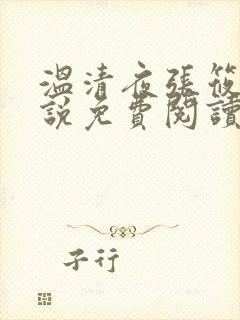 溫清夜張筱
說免費閱讀
子行